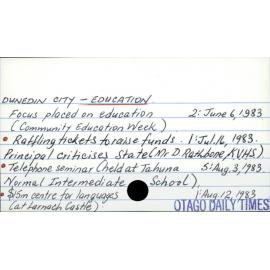 DUNEDIN CITY - EDUCATION.
Focus placed on education 2: June 6, 1983
(Community Education Week)
• Raffling tickets to raise funds. 1: Jul. 16, 1983.
Principal criticises State (Mr D. Rathbone, KVHS)
• Telephone seminar (held at Tahuna 5: Aug. 3, 1983
Normal Intermediate School).
• $15m centre for languages 1: Aug. 12, 1983
(at Larnach Castle).
OTAGO DAILY TIMES